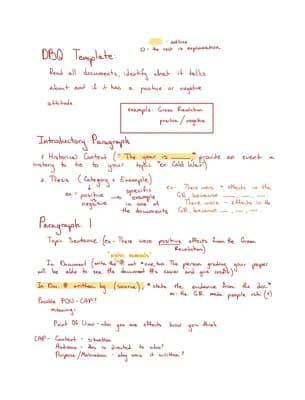 - outline
□ - the rest is explanation
DBQ Template:
Read all documents, identify what it talks
about and if it has a positive or negative
attitude.
example: Green Revolution
positive / negative
Introductory Paragraph
1 Historical Context ("The year is ____," provide an event in
history to tie to your topic "ex Cold War")
2. Thesis (Category + Example)
ex = positive → specific example
negative in one of the documents
ex- There were + effects in the
G.R. because __, __, __
There were - effects in the
G.R. because __, __, __
Paragraph 1
Topic Sentence (ex- There were positive effects from the Green
Revolution)
"explain example"
In Document (write the # out "one, two. The person grading your paper
will be able to see the document #'s easier and give credit)"
In Doc. # written by (source), "state the evidence from the doc"
ex: the G.R. made people rich (+)
Possible POV - CAP?
meaning:
Point Of View - how you are effects how you think
CAP- Context - situation
Audience - this is directed to who?
Purpose/Motivation - why was it written?